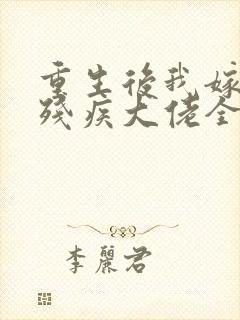 重生後我嫁
殘疾大佬全
李麗君